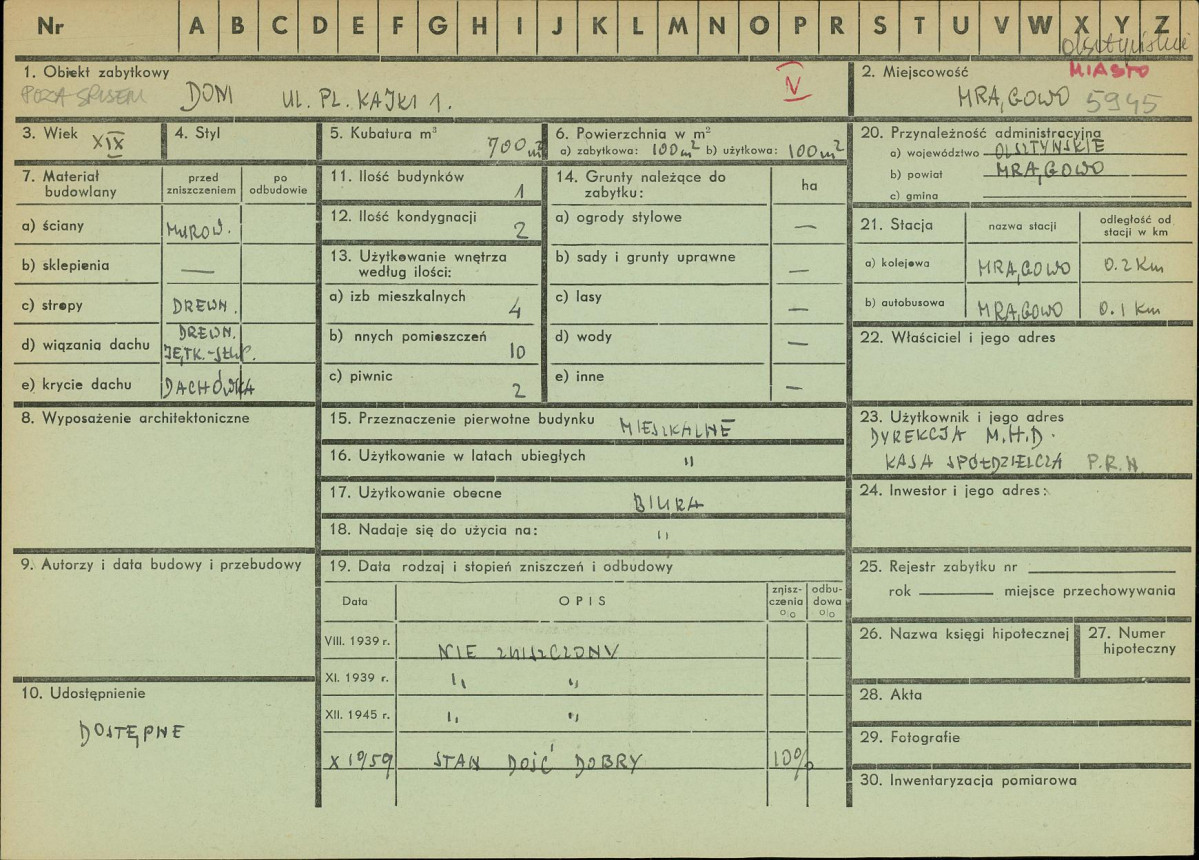 Nr A B C D E F G H I J K L M N O P R S T U V W X Y Z
olsztyńskie
1. Obiekt zabytkowy
POZA SPISEM DOM UL. PL. KAJKI 1. V
2. Miejscowość MIASTO
MRĄGOWO 5945
3. Wiek XIX
4. Styl
5. Kubatura m³
700 m³
6. Powierzchnia w m²
a) zabytkowa: 100 m² b) użytkowa: 100 m²
7. Materiał budowlany
przed zniszczeniem
po odbudowie
a) ściany MUROW.
b) sklepienia —
c) stropy DREWN.
d) wiązania dachu DREWN. JĘTK.-STŁP.
e) krycie dachu DACHÓWKA
8. Wyposażenie architektoniczne
9. Autorzy i data budowy i przebudowy
10. Udostępnienie
DOSTĘPNE
11. Ilość budynków 1
12. Ilość kondygnacji 2
13. Użytkowanie wnętrza
według ilości:
a) izb mieszkalnych 4
b) nnych pomieszczeń 10
c) piwnic 2
14. Grunty należące do
zabytku: ha
a) ogrody stylowe —
b) sady i grunty uprawne —
c) lasy —
d) wody —
e) inne —
15. Przeznaczenie pierwotne budynku MIESZKALNE
16. Użytkowanie w latach ubiegłych "
17. Użytkowanie obecne BIURA
18. Nadaje się do użycia na: "
19. Data rodzaj i stopień zniszczeń i odbudowy
Data OPIS zniszczenia o/o odbudowa o/o
VIII. 1939 r. NIE ZNISZCZONY
XI. 1939 r. " "
XII. 1945 r. " "
X 1959 STAN DOŚĆ DOBRY 10%
20. Przynależność administracyjna
a) województwo OLSZTYŃSKIE
b) powiat MRĄGOWO
c) gmina
21. Stacja nazwa stacji odległość od stacji w km
a) kolejowa MRĄGOWO 0.2 Km
b) autobusowa MRĄGOWO 0.1 Km
22. Właściciel i jego adres
23. Użytkownik i jego adres
DYREKCJA M.H.D.
KASA SPÓŁDZIELCZA P.R.N
24. Inwestor i jego adres:
25. Rejestr zabytku nr
rok miejsce przechowywania
26. Nazwa księgi hipotecznej
27. Numer hipoteczny
28. Akta
29. Fotografie
30. Inwentaryzacja pomiarowa